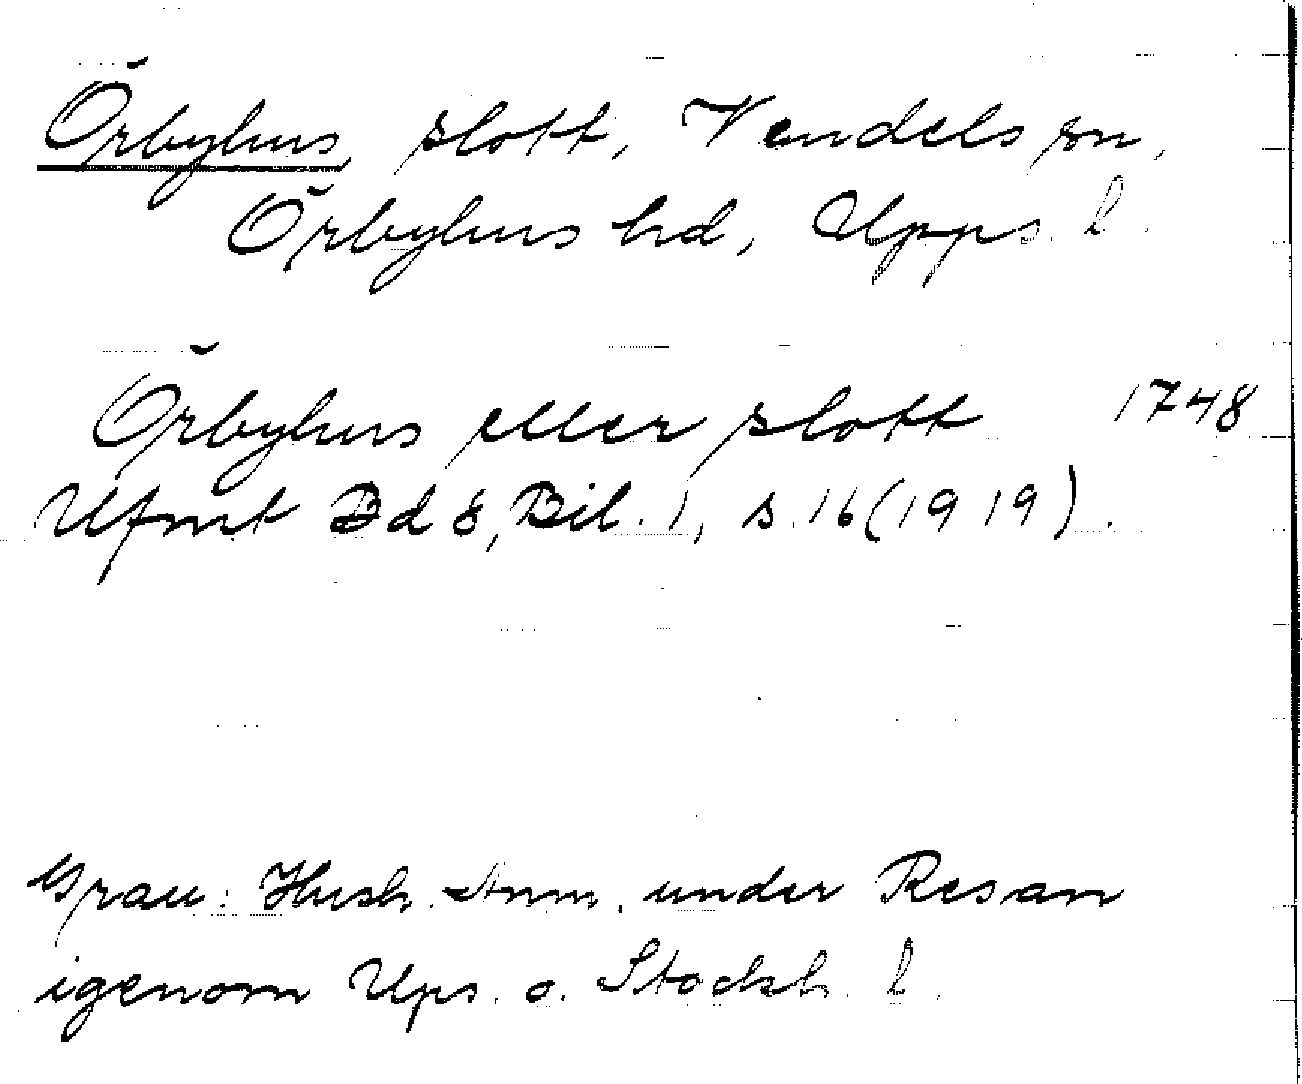 Örbyhus, slott, Vendels sn,
Örbyhus hd, Upps. l.
Örbyhus eller slott 1748
Ufmt Bd 8, Bil. 1, s. 16 (1919).
Grau: Hush. Anm. under Resan
igenom Ups. o. Stockh. l.